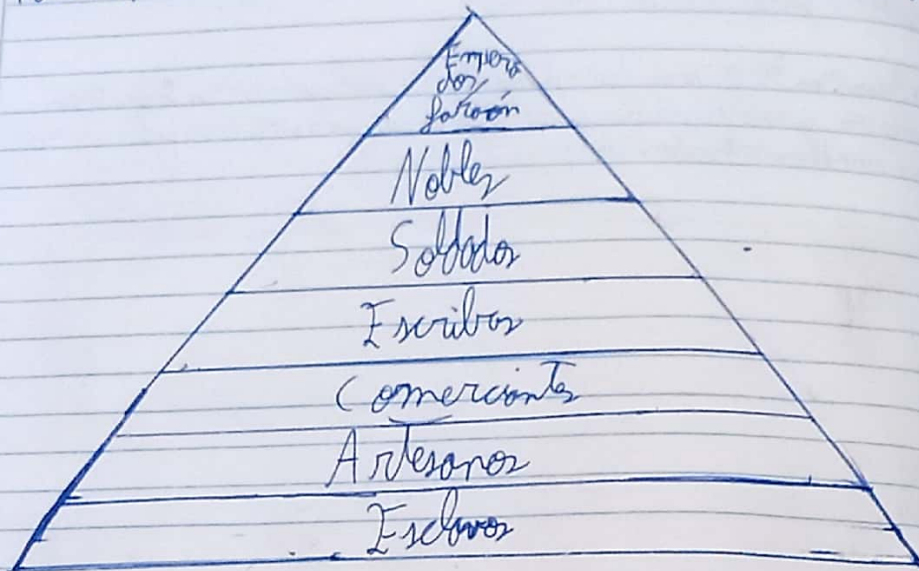 Empera
dor/
faraón
Nobles
Soldados
Escribas
Comerciantes
Artesanos
Esclavos